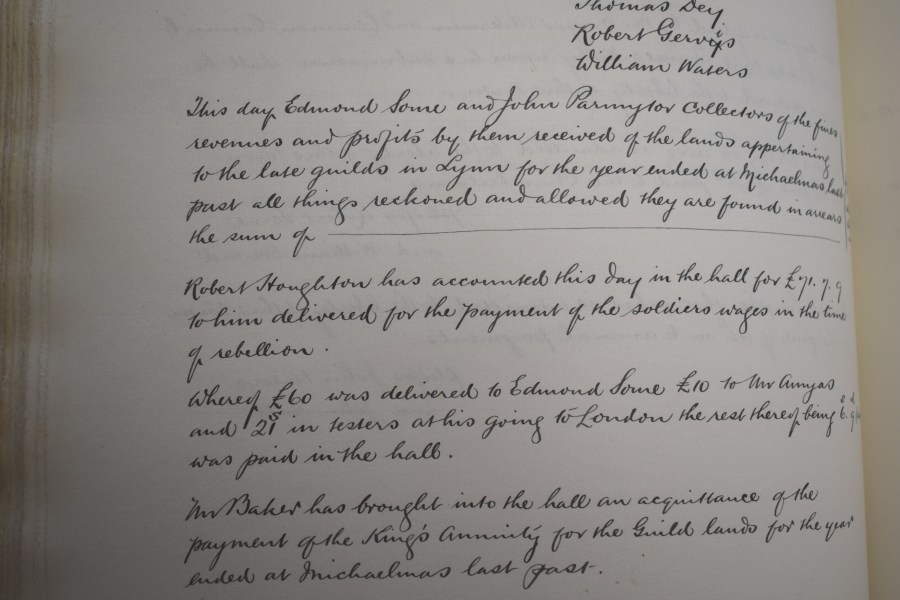 Thomas Dey
Robert Gervys
William Waters
This day Edmond Some and John Parmytor Collectors of the fines
revenues and profits by them received of the lands appertaining
to the late guilds in Lynn for the year ended at Michaelmas last
past all things reckoned and allowed they are found in arrears
the sum of
Robert Houghton has accounted this day in the hall for £71. 7. 9
to him delivered for the payment of the soldiers wages in the time
of rebellion.
Whereof £60 was delivered to Edmond Some £10 to Mr Amyas
and 21s in testers at his going to London the rest thereof being 6s. 9d
was paid in the hall.
Mr Baker has brought into the hall an acquittance of the
payment of the King's Annuity for the Guild lands for the year
ended at Michaelmas last past.